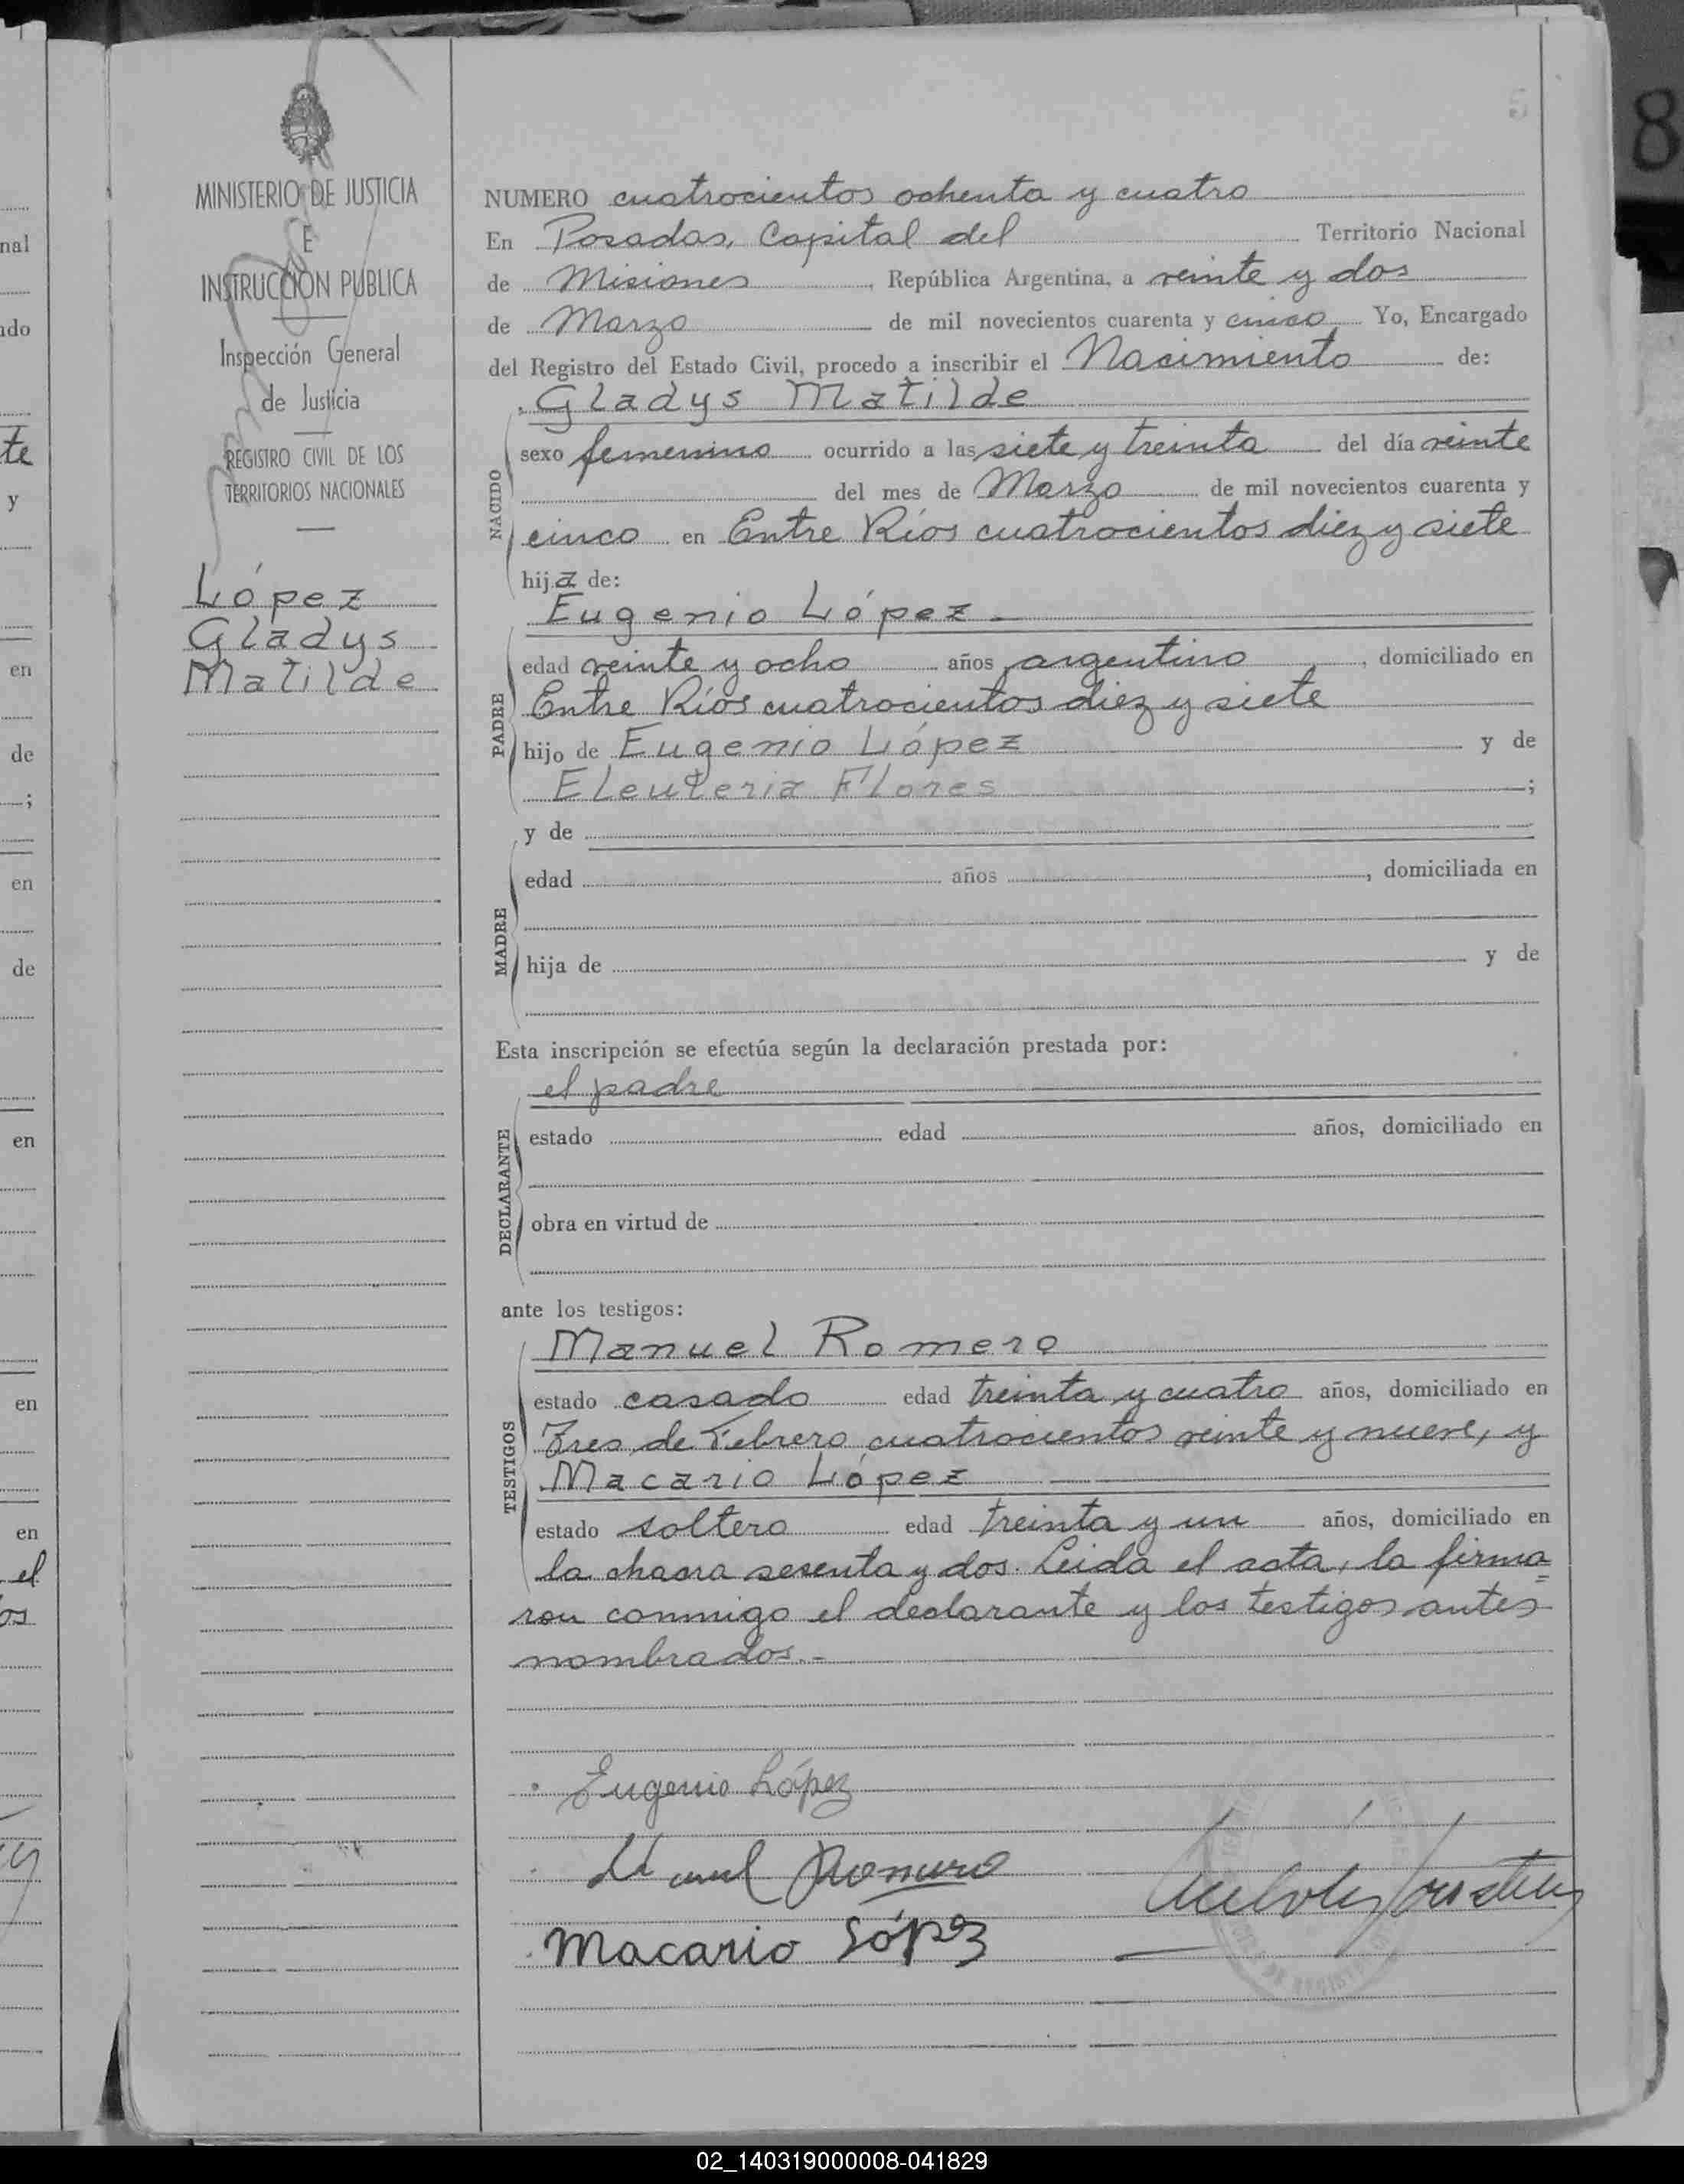 MINISTERIO DE JUSTICIA
E
INSTRUCCION PUBLICA
Inspección General
de Justicia
REGISTRO CIVIL DE LOS
TERRITORIOS NACIONALES
López
Gladys
Matilde
5
8
NUMERO cuatrocientos ochenta y cuatro
En Posadas, Capital del Territorio Nacional
de Misiones, República Argentina, a veinte y dos
de Marzo de mil novecientos cuarenta y cinco Yo, Encargado
del Registro del Estado Civil, procedo a inscribir el Nacimiento de:
Gladys Matilde
NACIDO
sexo femenino ocurrido a las siete y treinta del día veinte
del mes de Marzo de mil novecientos cuarenta y
cinco en Entre Ríos cuatrocientos diez y siete
hija de:
Eugenio López
PADRE
edad veinte y ocho años, argentino, domiciliado en
Entre Ríos cuatrocientos diez y siete
hijo de Eugenio López y de
Eleuteria Flores;
y de
MADRE
edad años, domiciliada en
hija de y de
Esta inscripción se efectúa según la declaración prestada por:
el padre
DECLARANTE
estado edad años, domiciliado en
obra en virtud de
ante los testigos:
Manuel Romero
TESTIGOS
estado casado edad treinta y cuatro años, domiciliado en
Tres de Febrero cuatrocientos veinte y nueve, y
Macario López
estado soltero edad treinta y un años, domiciliado en
la chacra sesenta y dos. Leida el acta, la firma=
ron conmigo el declarante y los testigos antes
nombrados.-
Eugenio López
Manuel Romero
Macario López
02_140319000008-041829